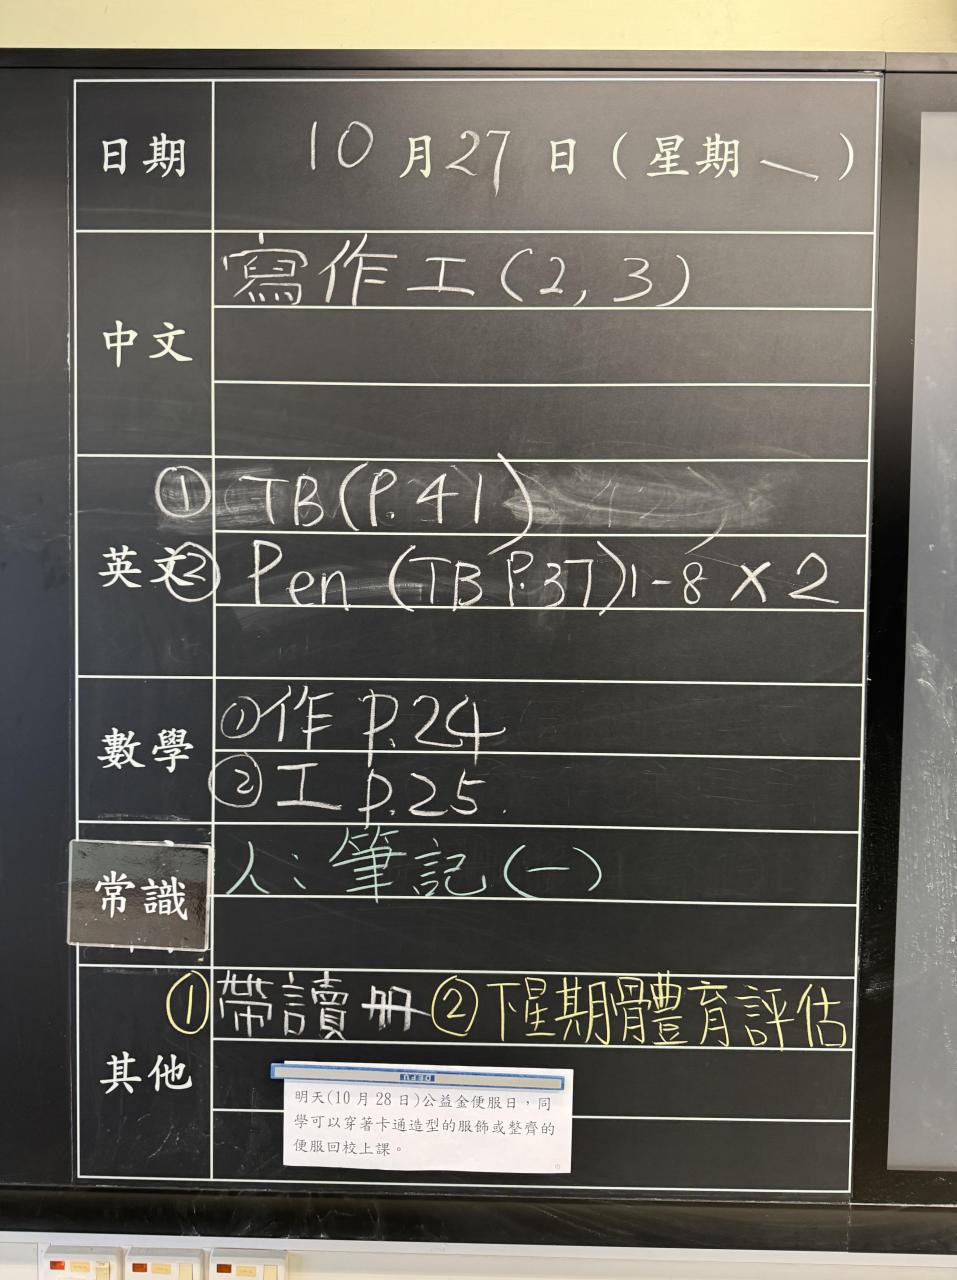 日期 10月27日(星期一)
中文 寫作工(2,3)
英文 ① TB(P.41)
② Pen (TB P.37) 1-8 × 2
數學 ①作 P.24
②工 P.25.
常識 人:筆記(一)
其他 ①帶讀冊 ②下星期體育評估
DELFU
明天(10月28日)公益金便服日,同
學可以穿著卡通造型的服飾或整齊的
便服回校上課。